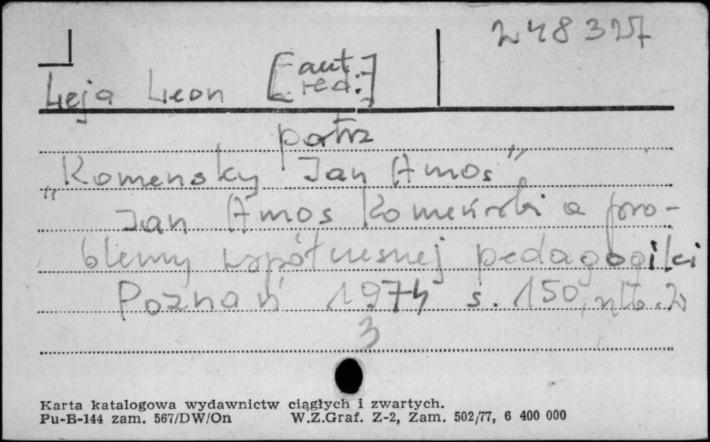 248327
Leja Leon [aut. red.]
patrz
"Komensky Jan Amos"
Jan Amos Komeński a pro-
blemy współczesnej pedagogiki
Poznań 1974 s. 150, nlb. 2
3
Karta katalogowa wydawnictw ciągłych i zwartych.
Pu-B-144 zam. 567/DW/On W.Z.Graf. Z-2, Zam. 502/77, 6 400 000